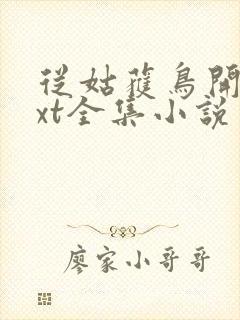 從姑獲鳥開
xt全集小說
廖家小哥哥